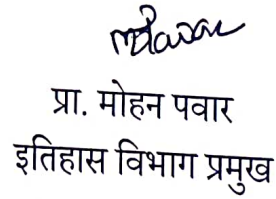 प्रा. मोहन पवार
इतिहास विभाग प्रमुख